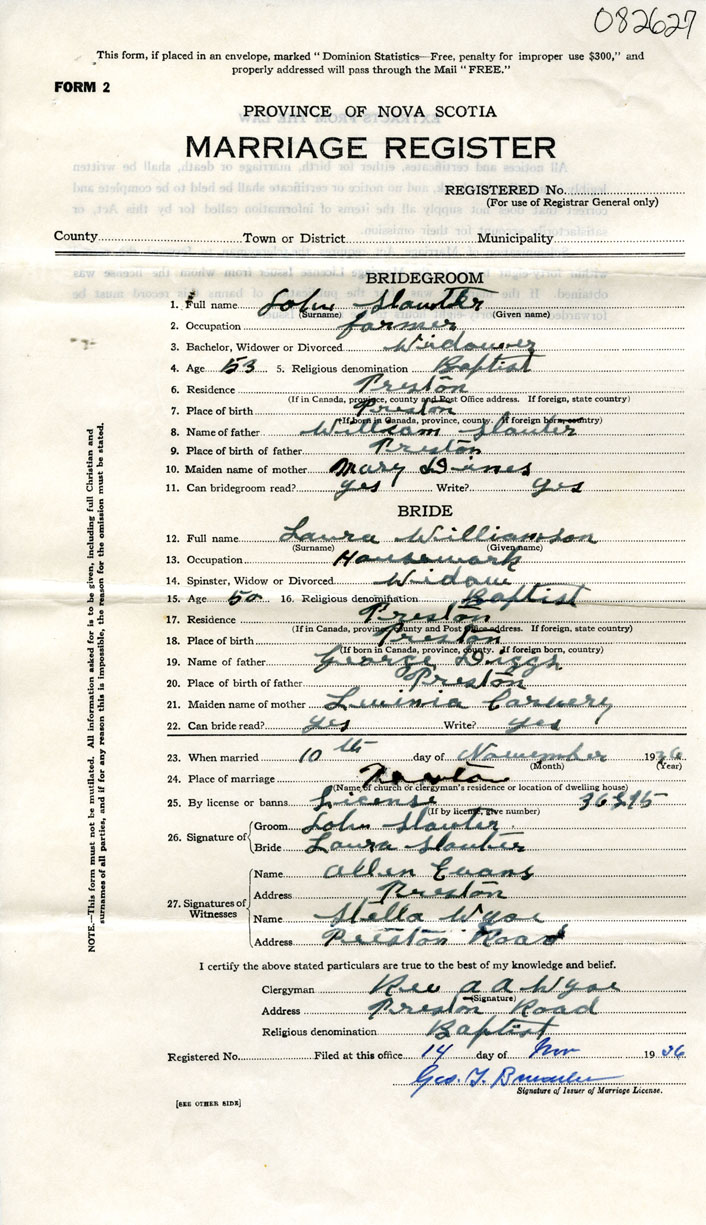 082627
This form, if placed in an envelope, marked "Dominion Statistics—Free, penalty for improper use $300," and
properly addressed will pass through the Mail "FREE."
FORM 2
PROVINCE OF NOVA SCOTIA
MARRIAGE REGISTER
REGISTERED No.
(For use of Registrar General only)
County Town or District Municipality
BRIDEGROOM
1. Full name John Slauter
(Surname) (Given name)
2. Occupation farmer
3. Bachelor, Widower or Divorced Widower
4. Age 53 5. Religious denomination Baptist
6. Residence Preston
(If in Canada, province, county and Post Office address. If foreign, state country)
7. Place of birth Preston
(If born in Canada, province, county. If foreign born, country)
8. Name of father William Slauter
9. Place of birth of father Preston
10. Maiden name of mother Mary
11. Can bridegroom read? yes Write? yes
BRIDE
12. Full name Laura Williamson
(Surname) (Given name)
13. Occupation Housework
14. Spinster, Widow or Divorced Widow
15. Age 50 16. Religious denomination Baptist
17. Residence Preston
(If in Canada, province, county and Post Office address. If foreign, state country)
18. Place of birth Preston
(If born in Canada, province, county. If foreign born, country)
19. Name of father George Diggs
20. Place of birth of father Preston
21. Maiden name of mother
22. Can bride read? yes Write? yes
23. When married 10th day of November 1936
(Month) (Year)
24. Place of marriage
(Name of church or clergyman's residence or location of dwelling house)
25. By license or banns License
(If by license, give number)
26. Signature of Groom John Slauter
Bride Laura Slauter
27. Signatures of Witnesses
Name Allen Evans
Address Preston
Name Stella Wyse
Address Preston Road
I certify the above stated particulars are true to the best of my knowledge and belief.
Clergyman Rev A A Wyse
(Signature)
Address Preston Road
Religious denomination Baptist
Registered No. Filed at this office 14 day of Nov 1936
Geo. T.
Signature of Issuer of Marriage License.
[SEE OTHER SIDE]
NOTE.—This form must not be mutilated. All information asked for is to be given, including full Christian and
surnames of all parties, and if for any reason this is impossible, the reason for the omission must be stated.